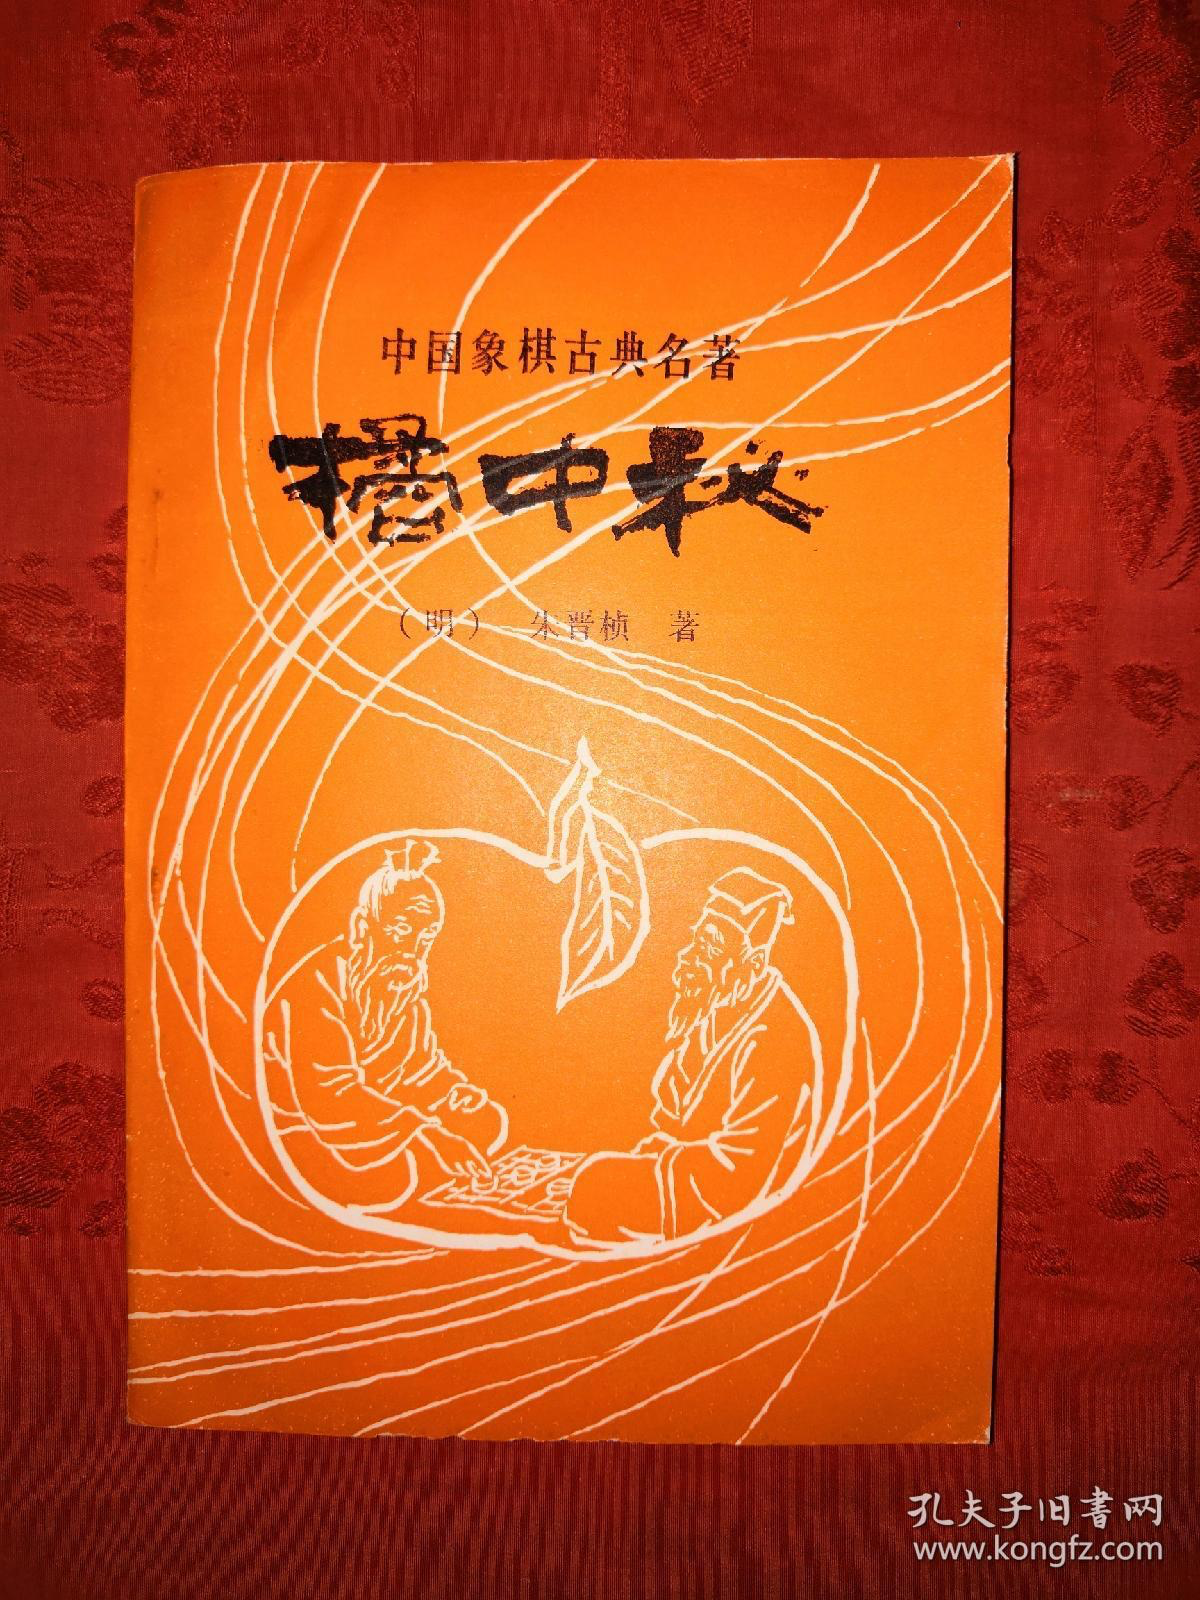 中国象棋古典名著
橘中秘
（明） 朱晋桢 著
孔夫子旧书网
www.kongfz.com